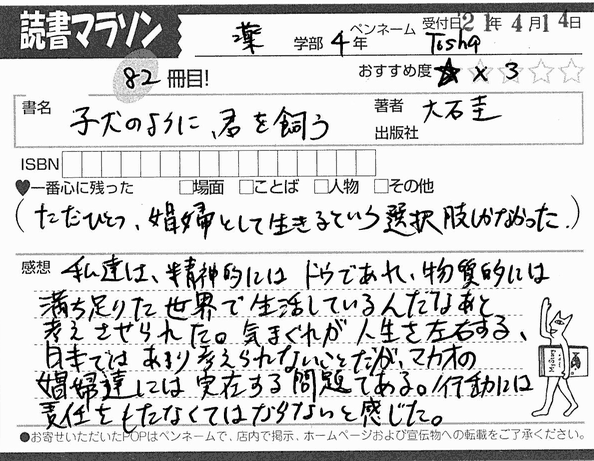 読書マラソン
薬 学部 4年 ペンネーム Tosha 受付日 21年 4月 14日
82 冊目! おすすめ度 ☆ × 3 ☆☆☆
書名 子犬のように、君を飼う 著者 大石圭
出版社
ISBN
♥一番心に残った □場面 □ことば □人物 □その他
(ただひとつ、娼婦として生きるという選択肢しかなかった。)
感想 私達は、精神的には ドウであれ、物質的には
満ち足りた世界で生活しているんだなあと
考えさせられた。気まぐれが人生を左右する、
日本ではあまり考えられないことだが、マカオの
娼婦達には実在する問題である。行動には
責任をもたなくてはならないと感じた。
●お寄せいただいたPOPはペンネームで、店内で掲示、ホームページおよび宣伝物への転載をご了承ください。